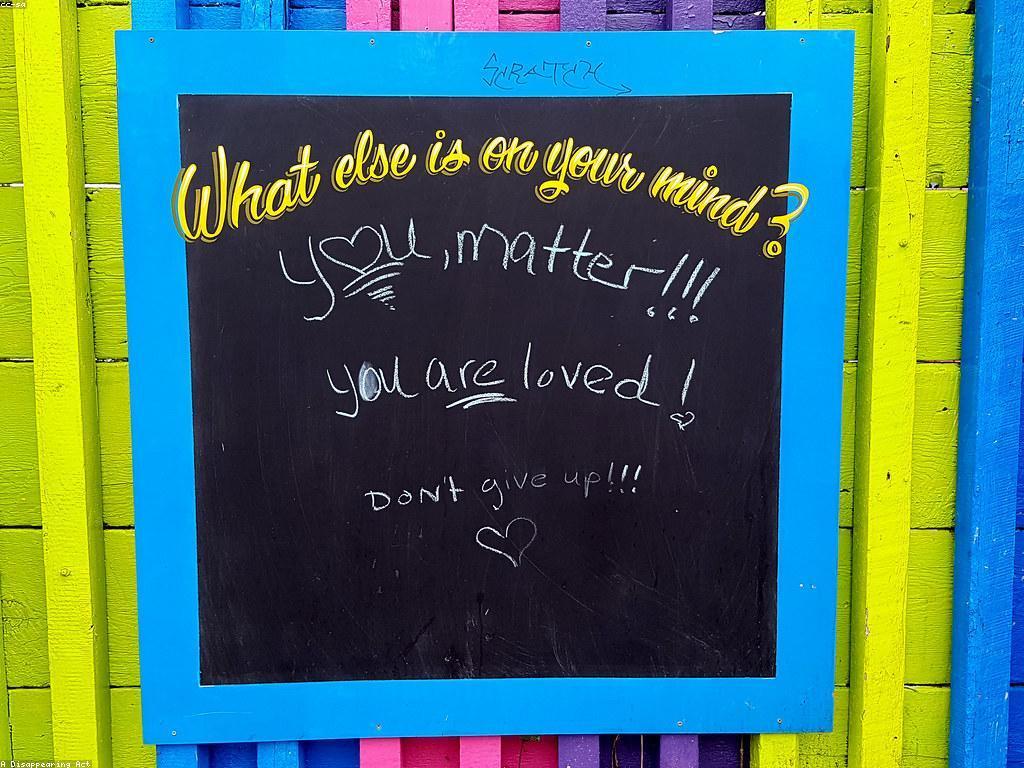 cc-sa
SCRATCH
What else is on your mind?
you, matter!!!
you are loved!
DON't give up!!!
A Disappearing Act